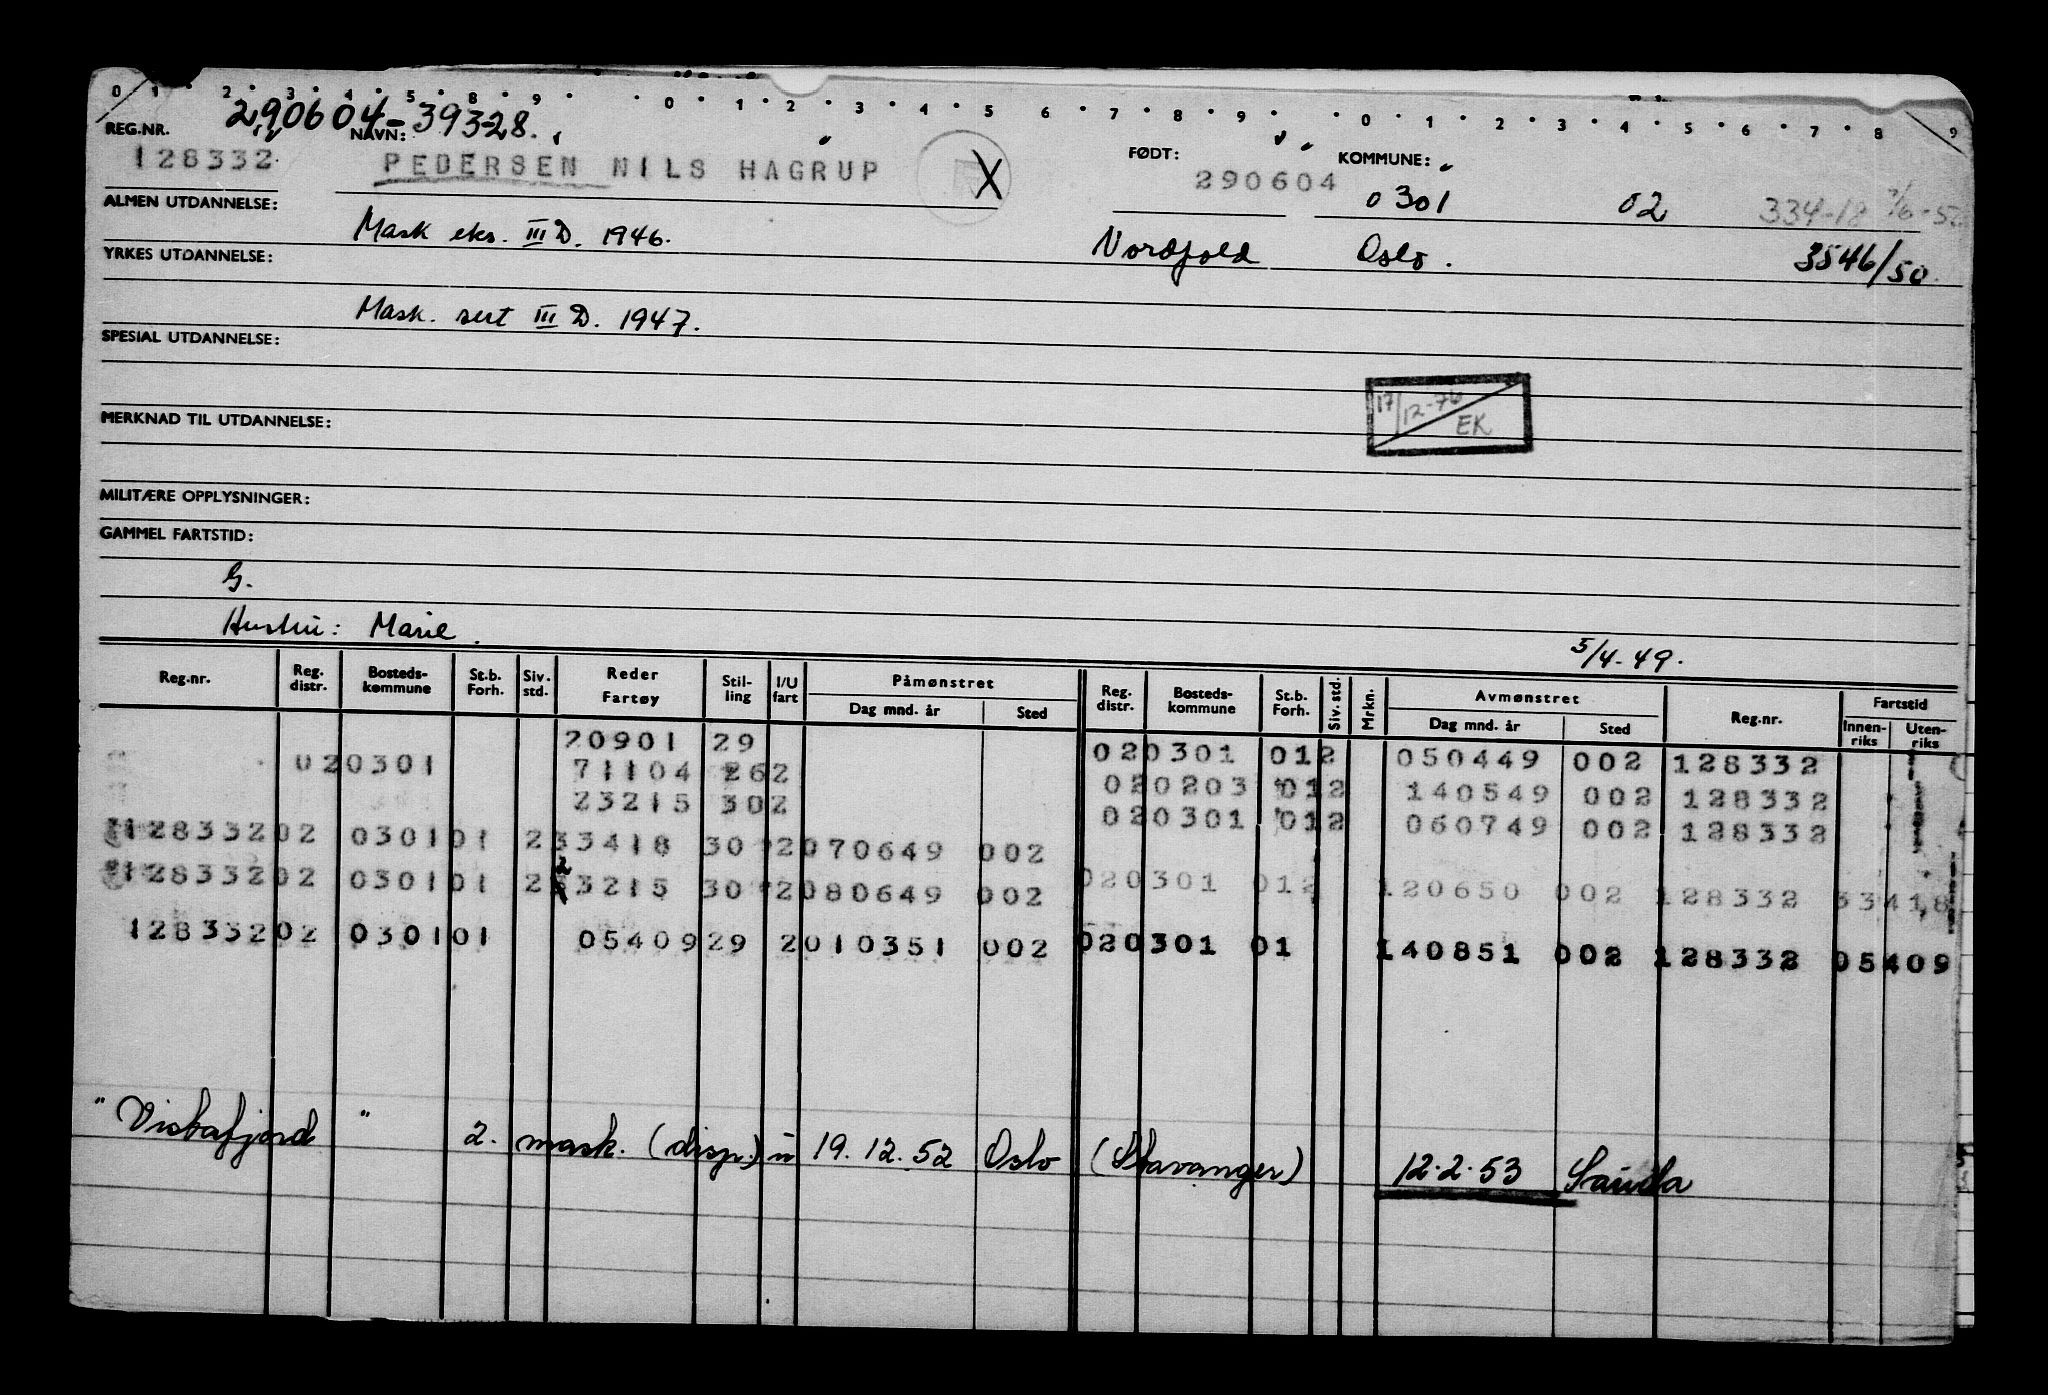 0 1 2 3 4 5 8 9 0 1 2 3 4 5 6 7 8 9 0 1 2 3 4 5 6 7 8 9
290604-39328.
REG.NR. NAVN: FØDT: KOMMUNE:
128332 PEDERSEN NILS HAGRUP X 290604 0301 02 334-18
ALMEN UTDANNELSE:
Mask eks. III D. 1946. Nordfold Oslo. 3546/50.
YRKES UTDANNELSE:
Mask. sert III D. 1947.
SPESIAL UTDANNELSE:
17/12-76 EK
MERKNAD TIL UTDANNELSE:
MILITÆRE OPPLYSNINGER:
GAMMEL FARTSTID:
G.
Hustru: Marie. 5/4-49.
Reg.nr. Reg. distr. Bosteds-kommune St.b. Forh. Siv. std. Reder Fartøy Stil-ling I/U fart Påmønstret Dag mnd. år Sted Reg. distr. Bosteds-kommune St.b. Forh. Siv. std. Mrkn. Avmønstret Dag mnd. år Sted Reg.nr. Fartstid Innen-riks Uten-riks
20901 29 020301 012 050449 002 128332
020301 71104 262 020203 012 140549 002 128332
23215 302 020301 012 060749 002 128332
128332 02 0301 01 2 33418 30 2 070649 002
128332 02 0301 01 2 23215 30 2 080649 002 020301 012 120650 002 128332 33418
128332 02 0301 01 05409 29 2 010351 002 020301 01 140851 002 128332 05409
"Vistafjord" 2. mask. (disp.) u 19.12.52 Oslo (Stavanger) 12.2.53 Sauda